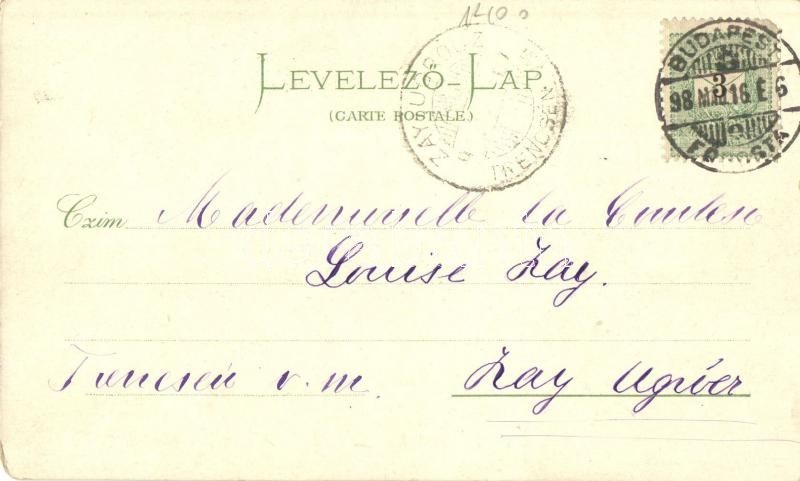 1400
LEVELEZŐ-LAP
(CARTE POSTALE.)
ZAY UGRÓCZ
TRENCSÉN
BUDAPEST
3
98 MÁJ. 16 E 6
FŐPOSTA
Czim Mademoiselle la Comtesse
Louise Zay.
Trencsén v. m. Zay Ugrócz